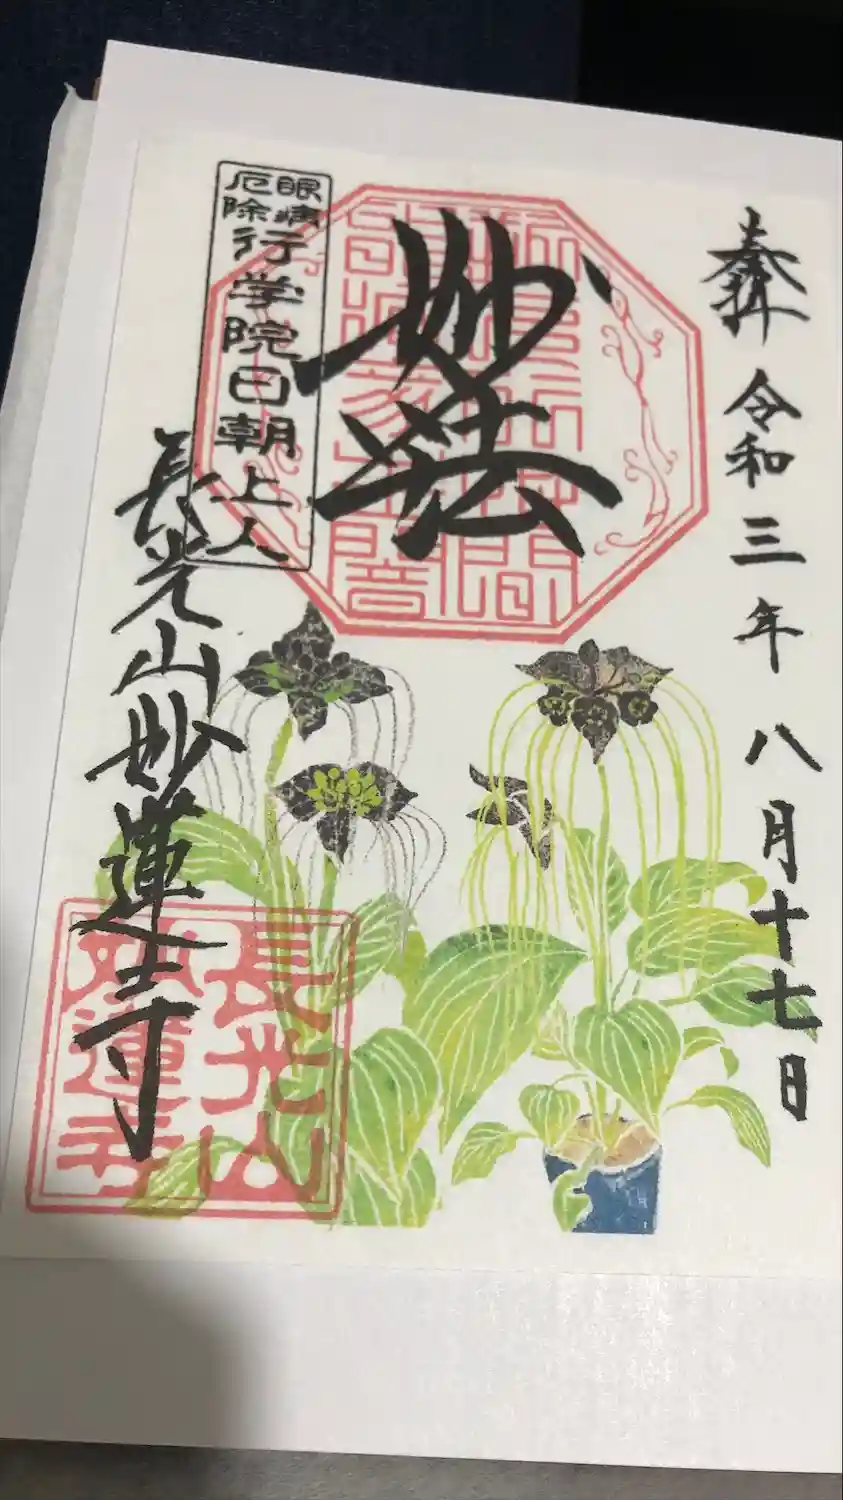 奉拝 令和三年 八月十七日
妙法
眼病
厄除
行学院日朝上人
長光山妙蓮寺
長光山
妙蓮寺